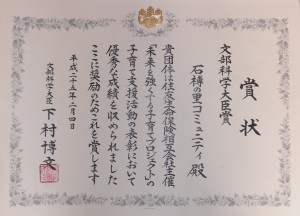 賞状
文部科学大臣賞
石榑の里コミュニティ殿
貴団体は住友生命保険相互会社主催
「未来を強くする子育てプロジェクト」の
子育て支援活動の表彰において
優秀な成績を収められました
ここに奨励のためこれを賞します
平成二十五年二月四日
文部科学大臣 下村博文